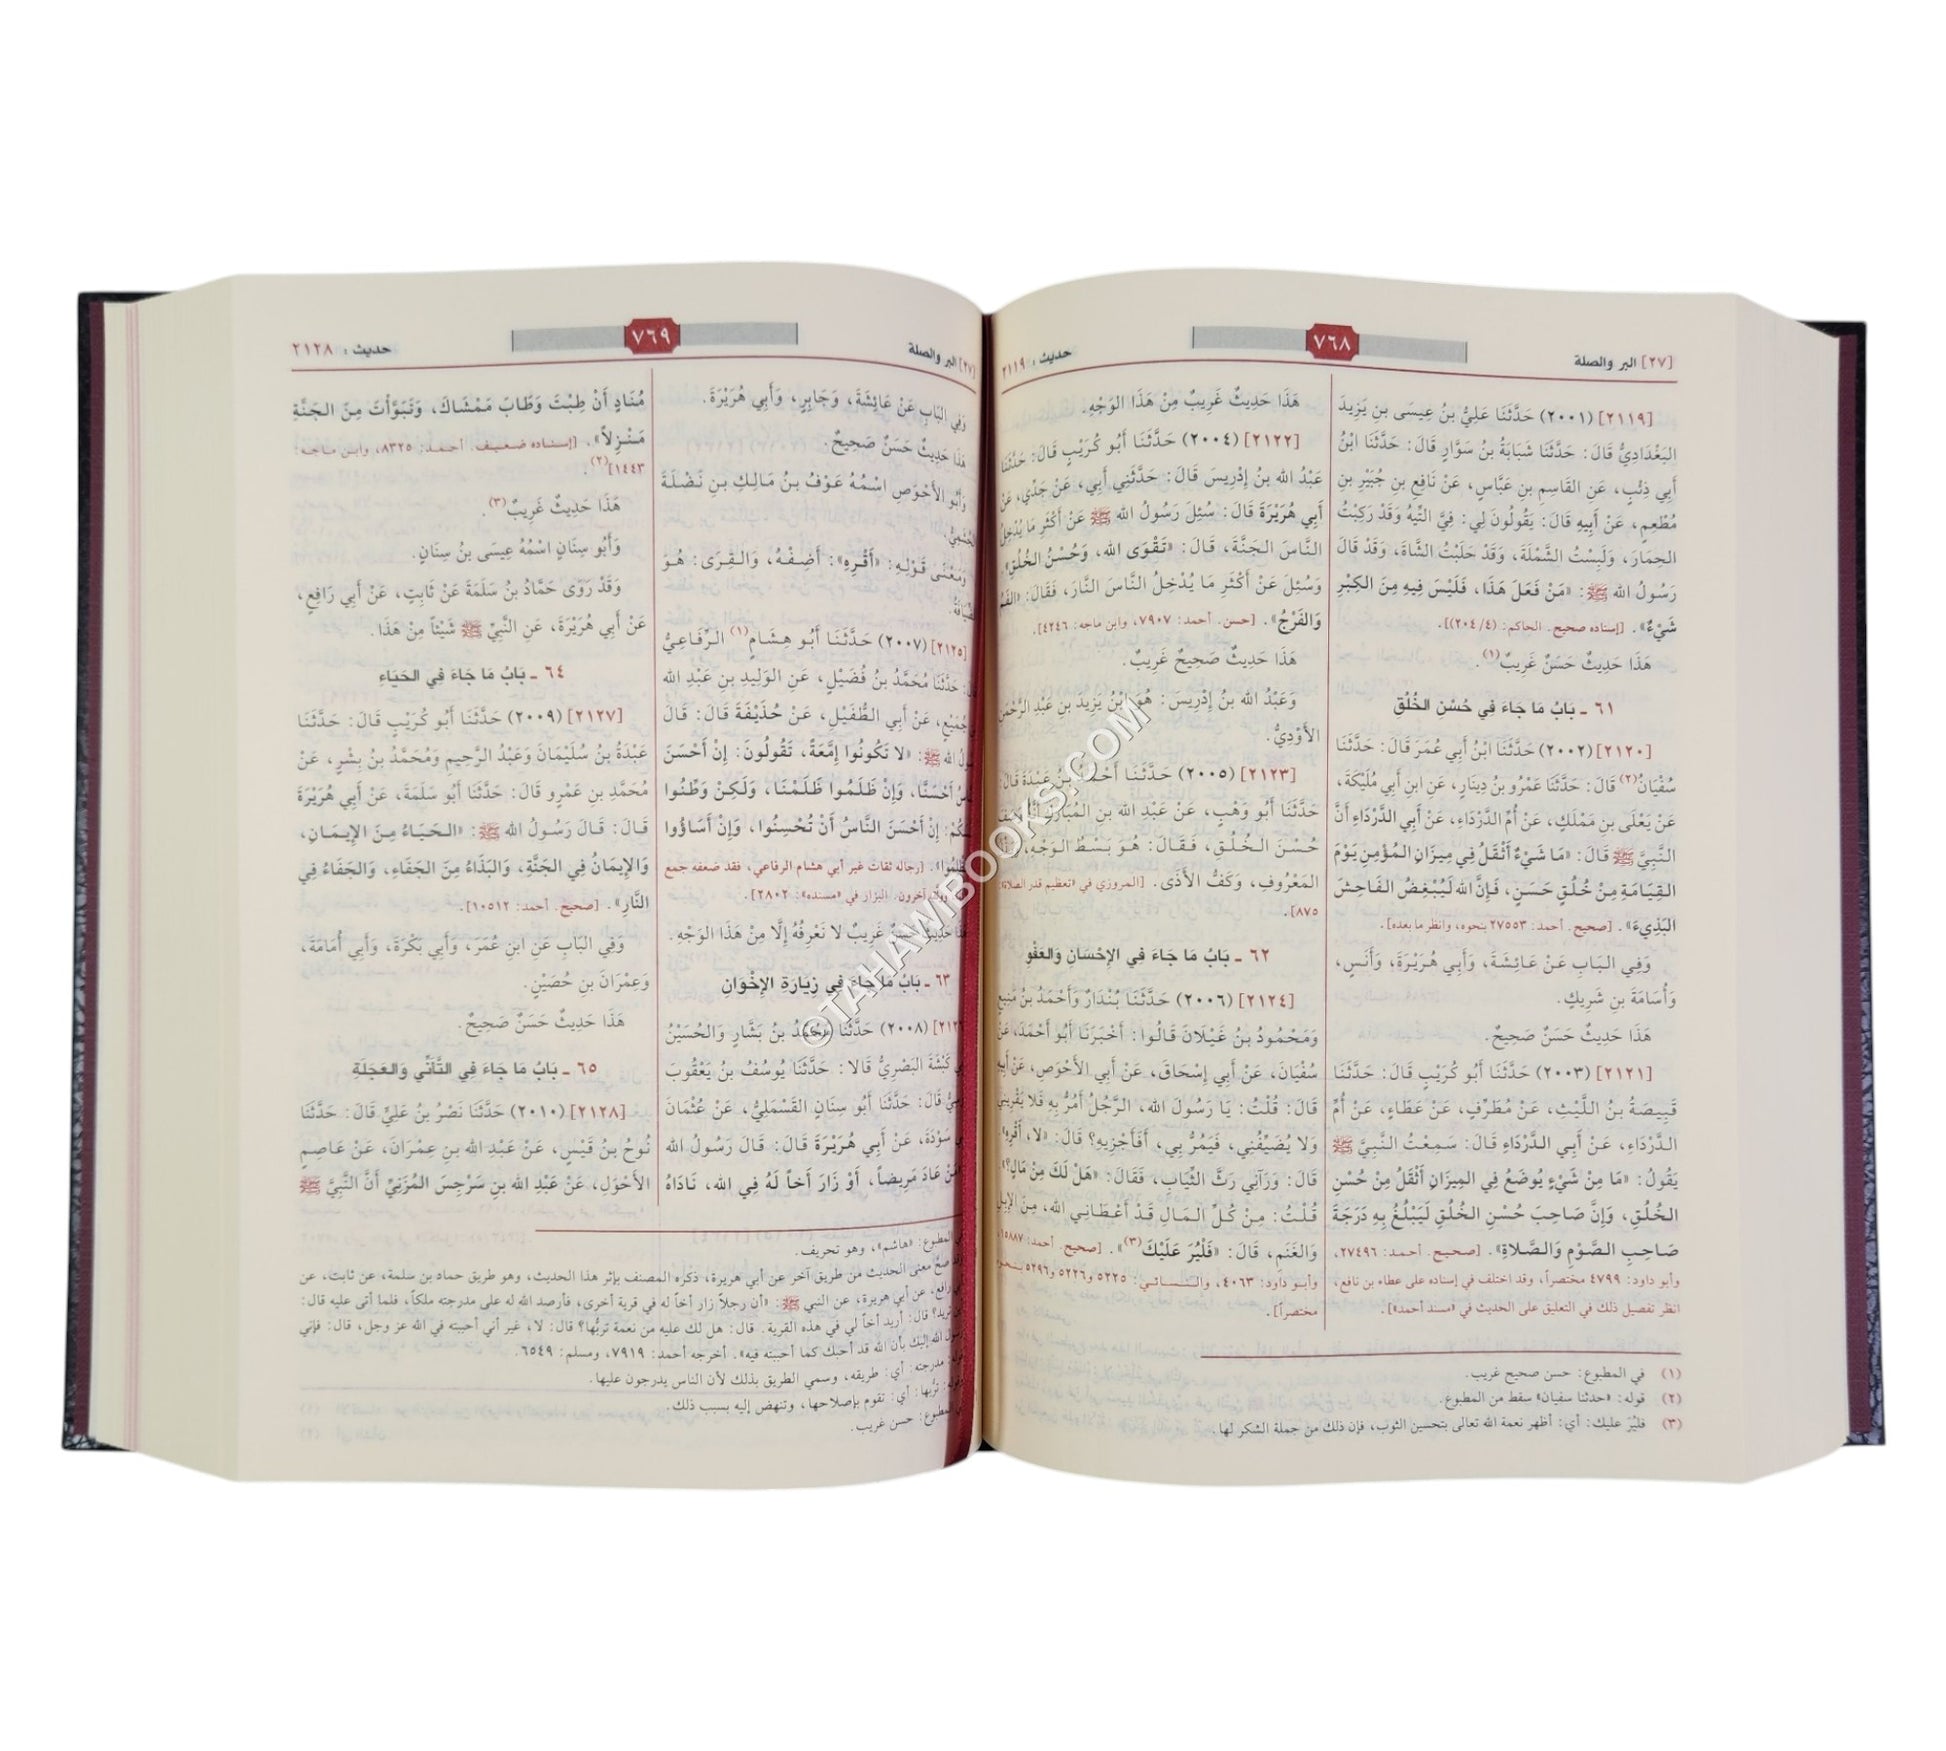 [٢٧] البر والصلة
٧٦٨
حديث: ٢١١٩
[٢١١٩] (٢٠٠١) حَدَّثَنَا عَلِيُّ بنُ عِيسَى بنِ يَزِيدَ
البَغْدَادِيُّ قَالَ: حَدَّثَنَا شَبَابَةُ بنُ سَوَّارٍ قَالَ: حَدَّثَنَا ابْنُ
أَبِي ذِئْبٍ، عَن القَاسِمِ بنِ عَبَّاسٍ، عَنْ نَافِعِ بنِ جُبَيْرِ بنِ
مُطْعِمٍ، عَنْ أَبِيهِ قَالَ: يَقُولُونَ لِي: فِيَّ التِّيهُ وَقَدْ رَكِبْتُ
الحِمَارَ، وَلَبِسْتُ الشَّمْلَةَ، وَقَدْ حَلَبْتُ الشَّاةَ، وَقَدْ قَالَ
رَسُولُ الله ﷺ: «مَنْ فَعَلَ هَذَا، فَلَيْسَ فِيهِ مِنَ الكِبْرِ
شَيْءٌ». [إسناده صحيح. الحاكم: (٤/ ٢٠٤)].
هَذَا حَدِيثٌ حَسَنٌ غَرِيبٌ(١).
٦١ ـ بَابُ مَا جَاءَ فِي حُسْنِ الخُلُقِ
[٢١٢٠] (٢٠٠٢) حَدَّثَنَا ابْنُ أَبِي عُمَرَ قَالَ: حَدَّثَنَا
سُفْيَانُ(٢) قَالَ: حَدَّثَنَا عَمْرُو بنُ دِينَارٍ، عَنِ ابنِ أَبِي مُلَيْكَةَ،
عَنْ يَعْلَى بنِ مَمْلَكٍ، عَنْ أُمِّ الدَّرْدَاءِ، عَنْ أَبِي الدَّرْدَاءِ أَنَّ
النَّبِيَّ ﷺ قَالَ: «مَا شَيْءٌ أَثْقَلُ فِي مِيزَانِ المُؤْمِنِ يَوْمَ
القِيَامَةِ مِنْ خُلُقٍ حَسَنٍ، فَإِنَّ الله لَيُبْغِضُ الفَاحِشَ
البَذِيءَ». [صحيح. أحمد: ٢٧٥٥٣ بنحوه، وانظر ما بعده].
وَفِي البَابِ عَنْ عَائِشَةَ، وَأَبِي هُرَيْرَةَ، وَأَنَسٍ،
وَأُسَامَةَ بنِ شَرِيكٍ.
هَذَا حَدِيثٌ حَسَنٌ صَحِيحٌ.
[٢١٢١] (٢٠٠٣) حَدَّثَنَا أَبُو كُرَيْبٍ قَالَ: حَدَّثَنَا
قَبِيصَةُ بنُ اللَّيْثِ، عَنْ مُطَرِّفٍ، عَنْ عَطَاءٍ، عَنْ أُمِّ
الدَّرْدَاءِ، عَنْ أَبِي الدَّرْدَاءِ قَالَ: سَمِعْتُ النَّبِيَّ ﷺ
يَقُولُ: «مَا مِنْ شَيْءٍ يُوضَعُ فِي المِيزَانِ أَثْقَلُ مِنْ حُسْنِ
الخُلُقِ، وَإِنَّ صَاحِبَ حُسْنِ الخُلُقِ لَيَبْلُغُ بِهِ دَرَجَةَ
صَاحِبِ الصَّوْمِ وَالصَّلَاةِ». [صحيح. أحمد: ٢٧٤٩٦،
وأبو داود: ٤٧٩٩ مختصراً، وقد اختلف في إسناده على عطاء بن نافع،
انظر تفصيل ذلك في التعليق على الحديث في «مسند أحمد»].
هَذَا حَدِيثٌ غَرِيبٌ مِنْ هَذَا الوَجْهِ.
[٢١٢٢] (٢٠٠٤) حَدَّثَنَا أَبُو كُرَيْبٍ قَالَ: حَدَّثَنَا
عَبْدُ الله بنُ إِدْرِيسَ قَالَ: حَدَّثَنِي أَبِي، عَنْ جَدِّي، عَنْ
أَبِي هُرَيْرَةَ قَالَ: سُئِلَ رَسُولُ الله ﷺ عَنْ أَكْثَرِ مَا يُدْخِلُ
النَّاسَ الجَنَّةَ، قَالَ: «تَقْوَى الله، وَحُسْنُ الخُلُقِ».
وَسُئِلَ عَنْ أَكْثَرِ مَا يُدْخِلُ النَّاسَ النَّارَ، فَقَالَ: «الفَمُ
وَالفَرْجُ». [حسن. أحمد: ٧٩٠٧، وابن ماجه: ٤٢٤٦].
هَذَا حَدِيثٌ صَحِيحٌ غَرِيبٌ.
وَعَبْدُ الله بنُ إِدْرِيسَ: هُوَ ابْنُ يَزِيدَ بنِ عَبْدِ الرَّحْمَنِ
الأَوْدِيُّ.
[٢١٢٣] (٢٠٠٥) حَدَّثَنَا أَحْمَدُ بنُ عَبْدَةَ قَالَ:
حَدَّثَنَا أَبُو وَهْبٍ، عَنْ عَبْدِ الله بنِ المُبَارَكِ أَنَّهُ وَصَفَ
حُسْنَ الخُلُقِ، فَقَالَ: هُوَ بَسْطُ الوَجْهِ،
المَعْرُوفِ، وَكَفُّ الأَذَى. [المروزي في «تعظيم قدر الصلاة»:
٨٧٥].
٦٢ ـ بَابُ مَا جَاءَ فِي الإِحْسَانِ وَالعَفْوِ
[٢١٢٤] (٢٠٠٦) حَدَّثَنَا بُنْدَارٌ وَأَحْمَدُ بنُ مَنِيعٍ
وَمَحْمُودُ بنُ غَيْلَانَ قَالُوا: أَخْبَرَنَا أَبُو أَحْمَدَ، عَنْ
سُفْيَانَ، عَنْ أَبِي إِسْحَاقَ، عَنْ أَبِي الأَحْوَصِ، عَنْ أَبِيهِ
قَالَ: قُلْتُ: يَا رَسُولَ الله، الرَّجُلُ أَمُرُّ بِهِ فَلَا يَقْرِينِي
وَلَا يُضَيِّفُنِي، فَيَمُرُّ بِي، أَفَأَجْزِيهِ؟ قَالَ: «لَا، أَقْرِهِ».
قَالَ: وَرَآنِي رَثَّ الثِّيَابِ، فَقَالَ: «هَلْ لَكَ مِنْ مَالٍ؟».
قُلْتُ: مِنْ كُلِّ المَالِ قَدْ أَعْطَانِي الله، مِنَ الإِبِلِ
وَالغَنَمِ، قَالَ: «فَلْيُرَ عَلَيْكَ(٣)». [صحيح. أحمد: ١٥٨٨٧،
وأبو داود: ٤٠٦٣، والنسائي: ٥٢٢٥ و٥٢٢٦ و٥٢٩٦ بنحوه
مختصراً].
(١) في المطبوع: حسن صحيح غريب.
(٢) قوله: «حدثنا سفيان» سقط من المطبوع.
(٣) فليُرَ عليك: أي: أظهر نعمة الله تعالى بتحسين الثوب، فإن ذلك من جملة الشكر لها.
[٢٧] البر والصلة
٧٦٩
حديث: ٢١٢٨
وَفِي البَابِ عَنْ عَائِشَةَ، وَجَابِرٍ، وَأَبِي هُرَيْرَةَ.
هَذَا حَدِيثٌ حَسَنٌ صَحِيحٌ.
وَأَبُو الأَحْوَصِ اسْمُهُ عَوْفُ بنُ مَالِكِ بنِ نَضْلَةَ
الجُشَمِيُّ.
وَمَعْنَى قَوْلِهِ: «أَقْرِهِ»: أَضِفْهُ، وَالقِرَى: هُوَ
الضِّيَافَةُ.
[٢١٢٥] (٢٠٠٧) حَدَّثَنَا أَبُو هِشَامٍ(١) الرِّفَاعِيُّ
حَدَّثَنَا مُحَمَّدُ بنُ فُضَيْلٍ، عَنِ الوَلِيدِ بنِ عَبْدِ الله
جُمَيْعٍ، عَنْ أَبِي الطُّفَيْلِ، عَنْ حُذَيْفَةَ قَالَ: قَالَ
الله ﷺ: «لَا تَكُونُوا إِمَّعَةً، تَقُولُونَ: إِنْ أَحْسَنَ
أَحْسَنَّا، وَإِنْ ظَلَمُوا ظَلَمْنَا، وَلَكِنْ وَطِّنُوا
إِنْ أَحْسَنَ النَّاسُ أَنْ تُحْسِنُوا، وَإِنْ أَسَاؤُوا
[رجاله ثقات غير أبي هشام الرفاعي، فقد ضعفه جمع
آخرون. البزار في «مسنده»: ٢٨٠٢].
هَذَا حَدِيثٌ حَسَنٌ غَرِيبٌ لَا نَعْرِفُهُ إِلَّا مِنْ هَذَا الوَجْهِ.
٦٣ ـ بَابُ مَا جَاءَ فِي زِيَارَةِ الإِخْوَانِ
(٢٠٠٨) حَدَّثَنَا مُحَمَّدُ بنُ بَشَّارٍ وَالحُسَيْنُ
كَبْشَةَ البَصْرِيُّ قَالَا: حَدَّثَنَا يُوسُفُ بنُ يَعْقُوبَ
قَالَ: حَدَّثَنَا أَبُو سِنَانٍ القَسْمَلِيُّ، عَنْ عُثْمَانَ
سَوْدَةَ، عَنْ أَبِي هُرَيْرَةَ قَالَ: قَالَ رَسُولُ الله
عَادَ مَرِيضاً، أَوْ زَارَ أَخاً لَهُ فِي الله، نَادَاهُ
مُنَادٍ أَنْ طِبْتَ وَطَابَ مَمْشَاكَ، وَتَبَوَّأْتَ مِنَ الجَنَّةِ
مَنْزِلاً». [إسناده ضعيف. أحمد: ٨٣٢٥، وابن ماجه:
١٤٤٣](٢).
هَذَا حَدِيثٌ غَرِيبٌ(٣).
وَأَبُو سِنَانٍ اسْمُهُ عِيسَى بنُ سِنَانٍ.
وَقَدْ رَوَى حَمَّادُ بنُ سَلَمَةَ عَنْ ثَابِتٍ، عَنْ أَبِي رَافِعٍ،
عَنْ أَبِي هُرَيْرَةَ، عَنِ النَّبِيِّ ﷺ شَيْئاً مِنْ هَذَا.
٦٤ ـ بَابُ مَا جَاءَ فِي الحَيَاءِ
[٢١٢٧] (٢٠٠٩) حَدَّثَنَا أَبُو كُرَيْبٍ قَالَ: حَدَّثَنَا
عَبْدَةُ بنُ سُلَيْمَانَ وَعَبْدُ الرَّحِيمِ وَمُحَمَّدُ بنُ بِشْرٍ، عَنْ
مُحَمَّدِ بنِ عَمْرٍو قَالَ: حَدَّثَنَا أَبُو سَلَمَةَ، عَنْ أَبِي هُرَيْرَةَ
قَالَ: قَالَ رَسُولُ الله ﷺ: «الحَيَاءُ مِنَ الإِيمَانِ،
وَالإِيمَانُ فِي الجَنَّةِ، وَالبَذَاءُ مِنَ الجَفَاءِ، وَالجَفَاءُ فِي
النَّارِ». [صحيح. أحمد: ١٠٥١٢].
وَفِي البَابِ عَنِ ابنِ عُمَرَ، وَأَبِي بَكْرَةَ، وَأَبِي أُمَامَةَ،
وَعِمْرَانَ بنِ حُصَيْنٍ.
هَذَا حَدِيثٌ حَسَنٌ صَحِيحٌ.
٦٥ ـ بَابُ مَا جَاءَ فِي التَّأَنِّي وَالعَجَلَةِ
[٢١٢٨] (٢٠١٠) حَدَّثَنَا نَصْرُ بنُ عَلِيٍّ قَالَ: حَدَّثَنَا
نُوحُ بنُ قَيْسٍ، عَنْ عَبْدِ الله بنِ عِمْرَانَ، عَنْ عَاصِمٍ
الأَحْوَلِ، عَنْ عَبْدِ الله بنِ سَرْجِسَ المُزَنِيِّ أَنَّ النَّبِيَّ ﷺ
المطبوع: «هاشم»، وهو تحريف.
صحَّ معنى الحديث من طريق آخر عن أبي هريرة، ذكره المصنف بإثر هذا الحديث، وهو طريق حماد بن سلمة، عن ثابت، عن
رافع، عن أبي هريرة، عن النبي ﷺ: «أن رجلاً زار أخاً له في قرية أخرى، فأرصد الله له على مدرجته ملكاً، فلما أتى عليه قال:
تريد؟ قال: أريد أخاً لي في هذه القرية. قال: هل لك عليه من نعمة تربُّها؟ قال: لا، غير أني أحببته في الله عز وجل، قال: فإني
الله إليك بأن الله قد أحبك كما أحببته فيه». أخرجه أحمد: ٧٩١٩، ومسلم: ٦٥٤٩.
مدرجته: أي: طريقه، وسمي الطريق بذلك لأن الناس يدرجون عليها.
تربُّها: أي: تقوم بإصلاحها، وتنهض إليه بسبب ذلك.
المطبوع: حسن غريب.
©TAHAWIBOOKS.COM